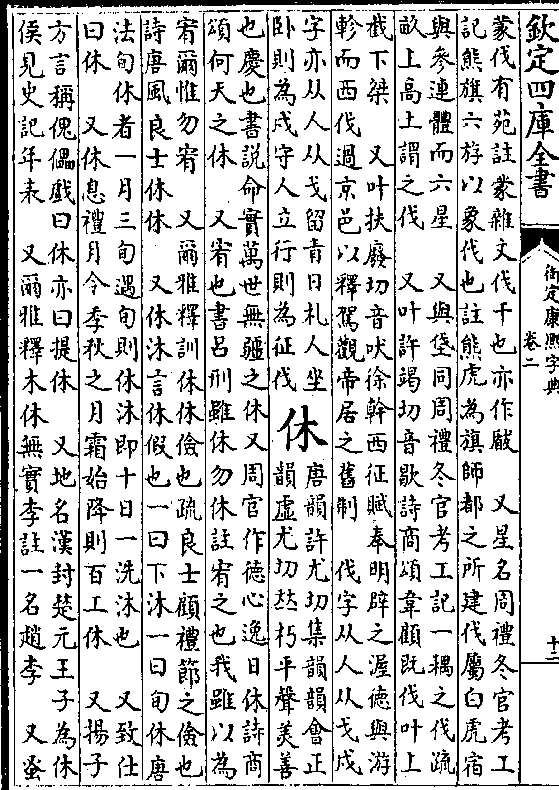 欽定四庫全書
御定康熙字典
卷二
十二
蒙伐有苑註蒙雜文伐干也亦作瞂　又星名周禮冬官考工
記熊旗六斿以象伐也註熊虎為旗師都之所建伐屬白虎宿
與參連體而六星　又與垡同周禮冬官考工記一耦之伐疏
畝上高上謂之伐　又叶許竭切音歇詩商頌韋顧既伐叶上
截下桀　又叶扶廢切音吠徐幹西征賦奉明辟之渥德與游
軫而西伐過京邑以釋駕觀帝居之舊制　伐字从人从戈戍
字亦从人从戈留青日札人坐
卧則為戍守人立行則為征伐
休
唐韻許尤切集韻韻會正
韻虛尤切𠀤朽平聲美善
也慶也書說命實萬世無疆之休又周官作德心逸日休詩商
頌何天之休　又宥也書呂刑雖休勿休註宥之也我雖以為
宥爾惟勿宥　又爾雅釋訓休休儉也疏良士顧禮節之儉也
詩唐風良士休休　又休沐言休假也一曰下沐一曰旬休唐
法旬休者一月三旬遇旬則休沐即十日一洗沐也　又致仕
曰休　又休息禮月令季秋之月霜始降則百工休　又揚子
方言稱傀儡戲曰休亦曰提休　又地名漢封楚元王子為休
侯見史記年表　又爾雅釋木休無實李註一名趙李　又蚤